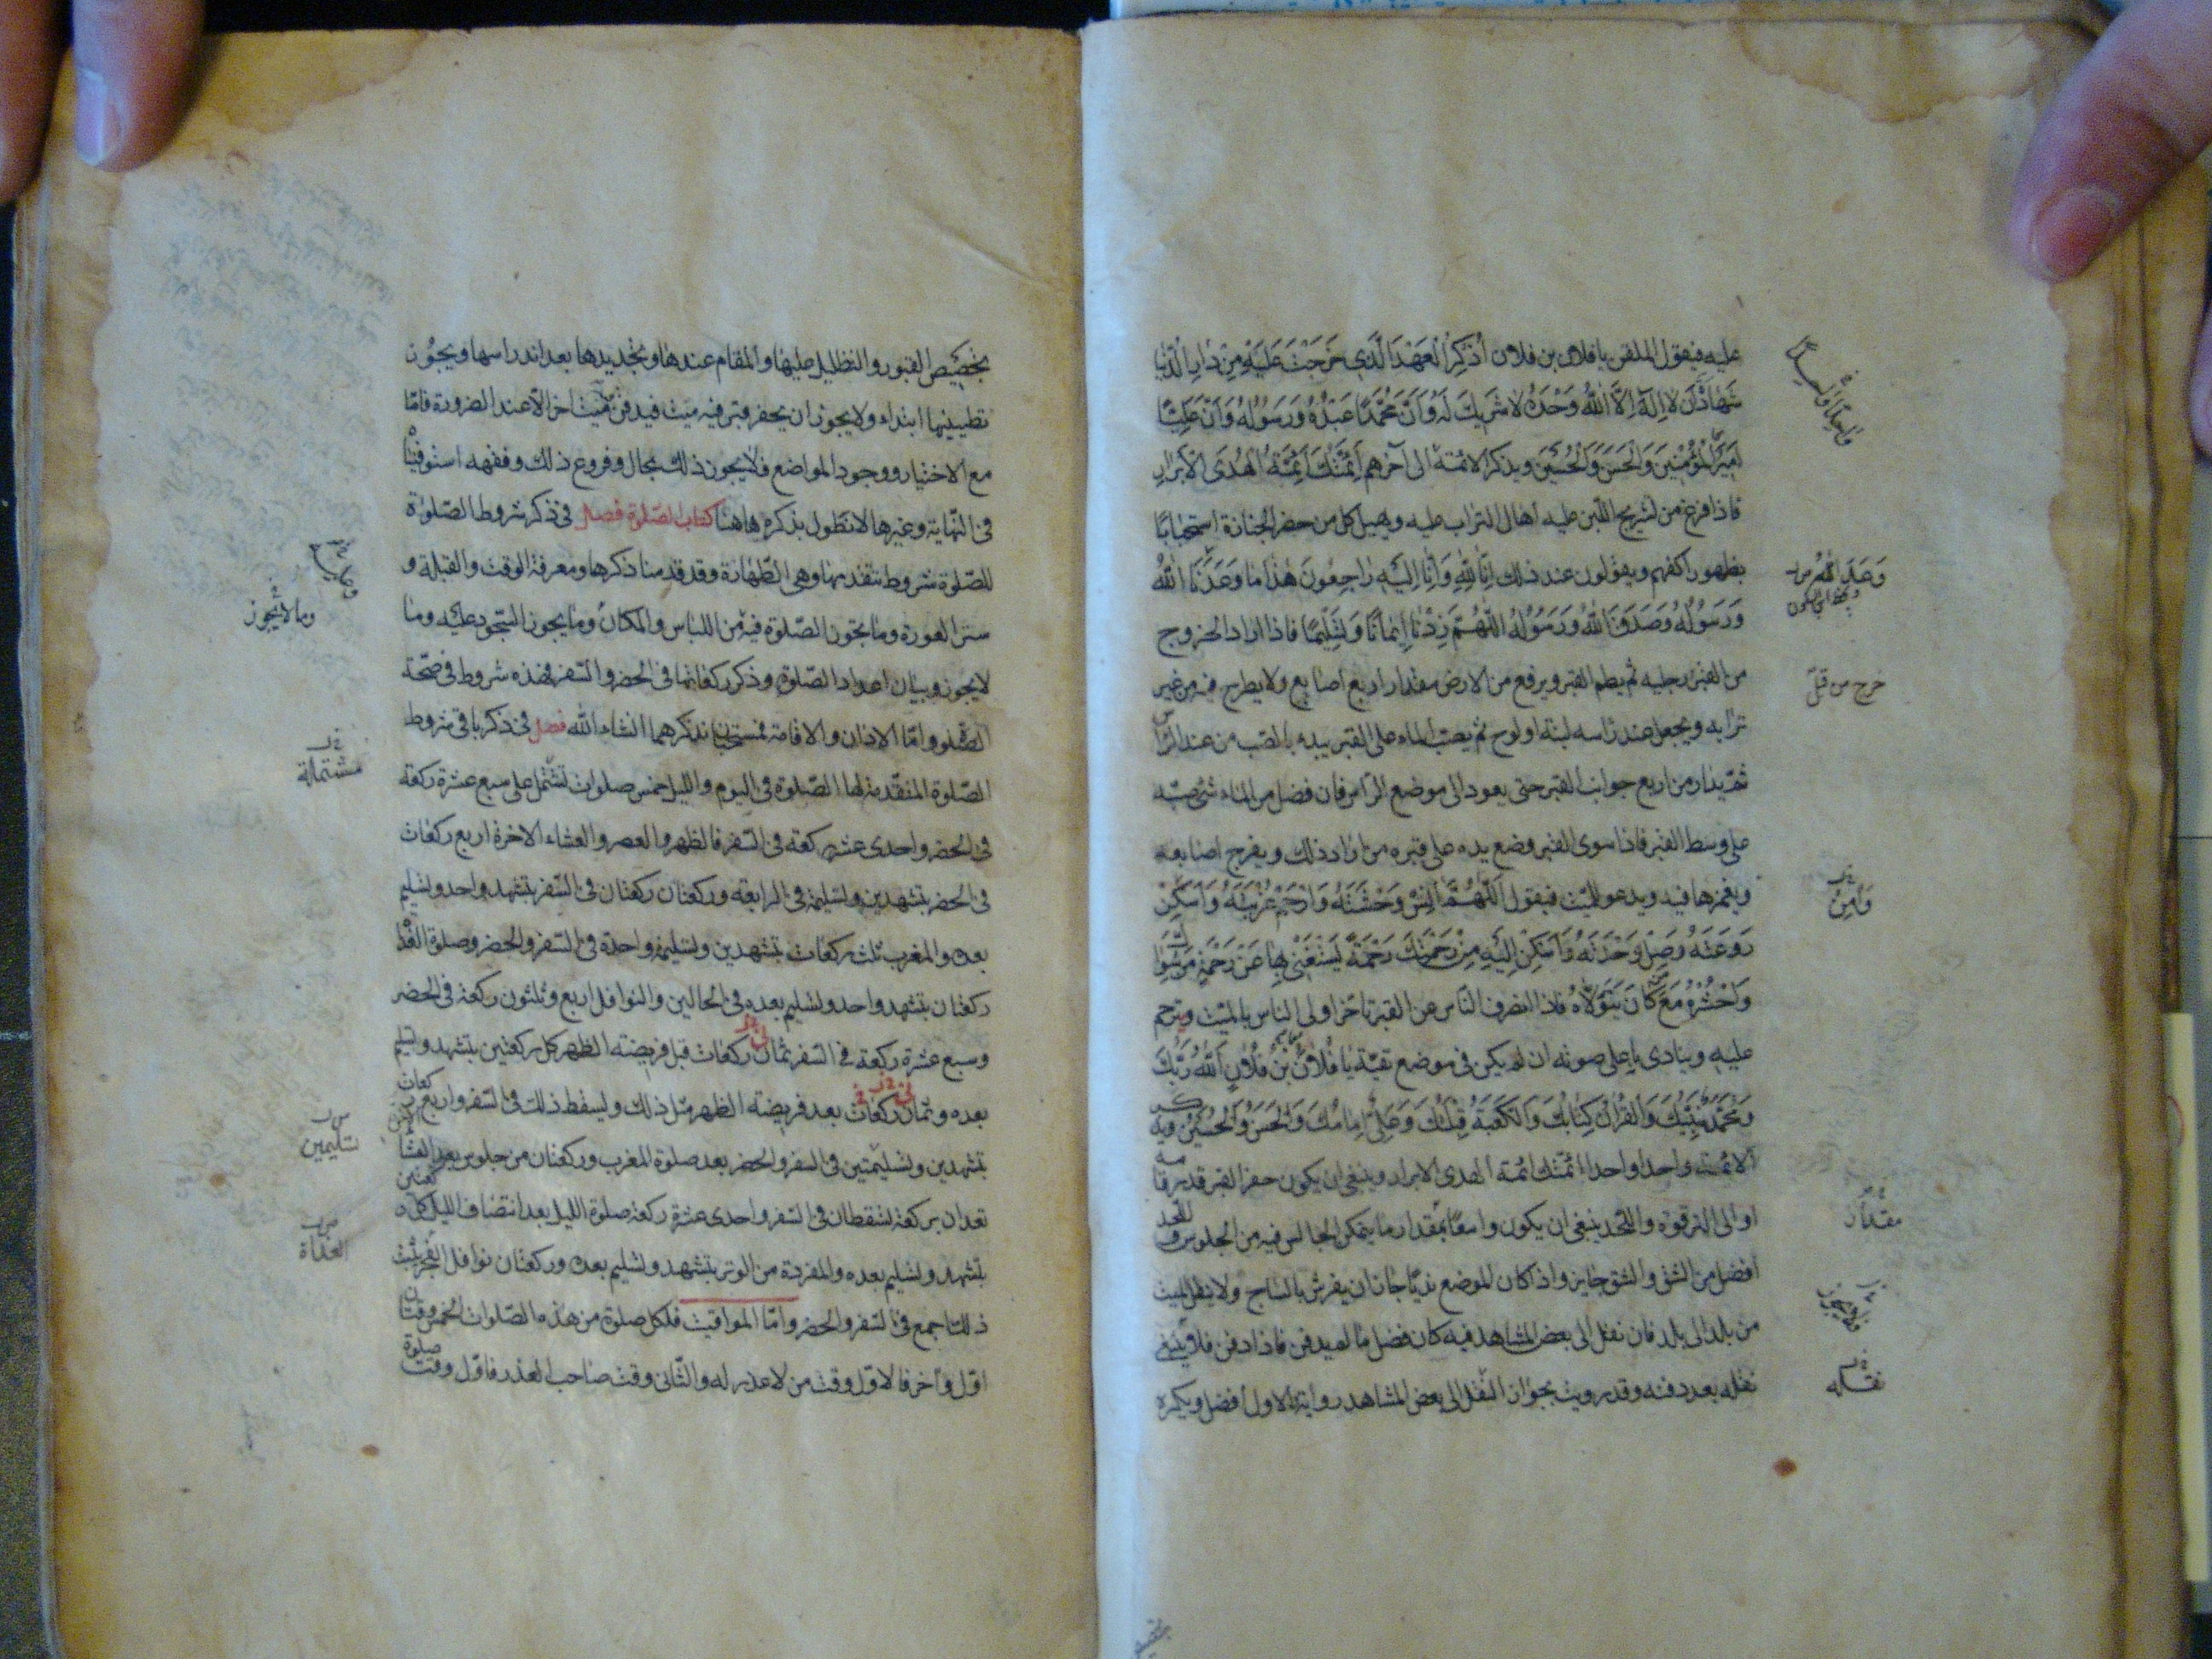 عليه فيقول الملقن يا فلان بن فلان أذكر العهد الذي خرجت عليه من دار الدنيا
شهادة أن لا إله إلا الله وحده لا شريك له وأن محمدا عبده ورسوله وأن عليا
أمير المؤمنين والحسن والحسين ويذكر الائمة الى آخرهم أئمتك أئمة الهدى الأبرار
فاذا فرغ من تشريج اللبن عليه اهال التراب عليه ويهيل كل من حضر الجنازة استحبابا
بظهور اكفهم ويقولون عند ذلك إنا لله وإنا إليه راجعون هذا ما وعدنا الله
ورسوله وصدق الله ورسوله اللهم زدنا إيمانا وتسليما فاذا اراد الخروج
من القبر رجليه ثم يطم القبر ويرفع من الارض مقدار اربع اصابع ولا يطرح فيه من غير
ترابه ويجعل عند راسه لبنة او لوح ثم يصب الماء على القبر يبدء بالصب من عند الراس
ثم يدار من اربع جوانب القبر حتى يعود الى موضع الراس فان فضل من الماء شئ صبه
على وسط القبر فاذا سوى القبر وضع يده على قبره من اراد ذلك ويفرج اصابعه
ويغمزها فيه ويدعو للميت فيقول اللهم آنس وحشته وارحم غربته واسكن
روعته وصل وحدته وأسكن إليه من رحمتك رحمة يستغني بها عن رحمة من سواك
واحشره مع من كان يتولاه فاذا انصرف الناس عن القبر تاخر اولى الناس بالميت وترحم
عليه وينادى باعلى صوته ان لم يكن في موضع تقية يا فلان بن فلان الله ربك
ومحمد نبيك والقرآن كتابك والكعبة قبلتك وعلي إمامك والحسن والحسين ويذكر
الائمة واحدا واحدا ائمتك ائمة الهدى الابرار وينبغي ان يكون حفر القبر قدر قامة
او الى الترقوة واللحد ينبغي ان يكون واسعا بمقدار ما يتمكن الجالس فيه من الجلوس واللحد
افضل من الشق والشق جايز واذا كان الموضع نديا جاز ان يفرش بالساج ولا ينقل الميت
من بلد الى بلد فان نقل الى بعض المشاهد فيه كان فضل ما لم يدفن فاذا دفن فلا ينبغي
نقله بعد دفنه وقد رويت بجواز النقل الى بعض المشاهد رواية والاول افضل ويكره
خرج من قبل
وآمن
مقدار
نقله
تجصيص القبور والتظليل عليها والمقام عندها وتجديدها بعد اندراسها ويجوز
تطيينها ابتداء ولا يجوز ان يحفر قبر فيه ميت فيدفن فيه ميت اخر الا عند الضرورة فاما
مع الاختيار ووجود المواضع فلا يجوز ذلك بحال وفروع ذلك وفقهه استوفيناه
في النهاية وغيرها لا نطول بذكره هاهنا كتاب الصلوة فصل في ذكر شروط الصلوة
للصلوة شروط تتقدمها وهي الطهارة وقد قدمنا ذكرها ومعرفة الوقت والقبلة و
ستر العورة وما يجوز الصلوة فيه من اللباس والمكان وما يجوز السجود عليه وما
لا يجوز وبيان اعداد الصلوة وذكر ركعاتها في الحضر والسفر فهذه شروط في صحة
الصلوة واما الاذان والاقامة فمستحبان نذكرهما انشاء الله فصل في ذكر باقي شروط
الصلوة المتقدمة لها الصلوة في اليوم والليل خمس صلوات تشتمل على سبع عشرة ركعة
في الحضر واحدى عشر ركعة في السفر فالظهر والعصر والعشاء الاخرة اربع ركعات
في الحضر بتشهدين وتسليمة في الرابعة وركعتان ركعتان في السفر بتشهد واحد وتسليم
بعده والمغرب ثلث ركعات بتشهدين وتسليمة واحدة في السفر والحضر وصلوة الغداة
ركعتان بتشهد واحد وتسليم بعده في الحالين والنوافل اربع وثلثون ركعة في الحضر
وسبع عشرة ركعة في السفر ثمان ركعات قبل فريضته الظهر كل ركعتين بتشهد وتسليم
بعده وثمان ركعات بعد فريضته الظهر مثل ذلك ويسقط ذلك في السفر واربع ركعات
بتشهدين وتسليمتين في السفر والحضر بعد صلوة المغرب وركعتان من جلوس بعد العشاء
تعدان بركعة تسقطان في السفر واحدى عشرة ركعة صلوة الليل بعد انتصاف الليل كل ركعتين
بتشهد وتسليم بعده والمفردة من الوتر بتشهد وتسليم بعده وركعتان نوافل الفجر يثبت
ذلك اجمع في السفر والحضر واما المواقيت فلكل صلوة من هذه الصلوات الخمس وقتان
اول وآخر فالاول وقت من لا عذر له والثاني وقت صاحب العذر فاول وقت صلوة
وما لا يجوز
مشتملة
تسليمين
الغداة